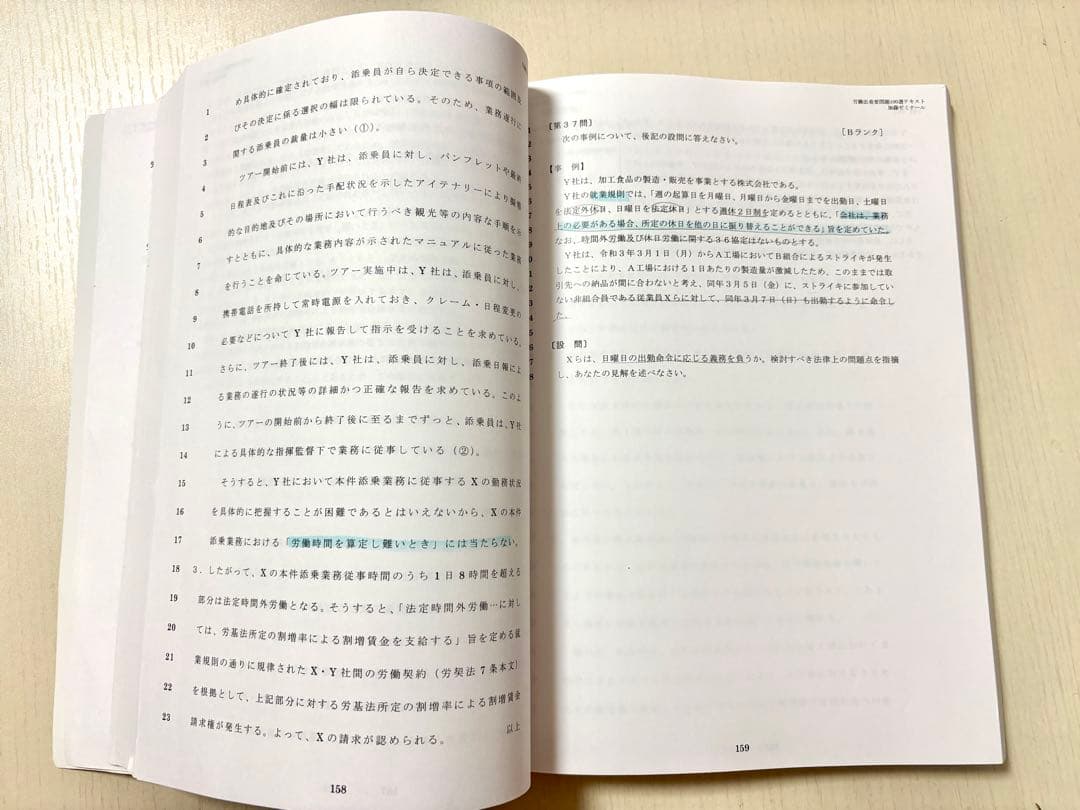 1 め具体的に確定されており、添乗員が自ら決定できる事項の範囲及
2 びその決定に係る選択の幅は限られている。そのため、業務遂行に
3 関する添乗員の裁量は小さい(①)。
4 ツアー開始前には、Y社は、添乗員に対し、パンフレットや最終
5 日程表及びこれに沿った手配状況を示したアイテナリーにより具体
6 的な目的地及びその場所において行うべき観光等の内容な手順を示
7 すとともに、具体的な業務内容が示されたマニュアルに従った業務
8 を行うことを命じている。ツアー実施中は、Y社は、添乗員に対し、
9 携帯電話を所持して常時電源を入れておき、クレーム・日程変更の
10 必要などについてY社に報告して指示を受けることを求めている。
11 さらに、ツアー終了後には、Y社は、添乗員に対し、添乗日報によ
12 る業務の遂行の状況等の詳細かつ正確な報告を求めている。このよ
13 うに、ツアーの開始前から終了後に至るまでずっと、添乗員は、Y社
14 による具体的な指揮監督下で業務に従事している(②)。
15 そうすると、Y社において本件添乗業務に従事するXの勤務状況
16 を具体的に把握することが困難であるとはいえないから、Xの本件
17 添乗業務における「労働時間を算定し難いとき」には当たらない。
18 3.したがって、Xの本件添乗業務従事時間のうち1日8時間を超える
19 部分は法定時間外労働となる。そうすると、「法定時間外労働…に対し
20 ては、労基法所定の割増率による割増賃金を支給する」旨を定める就
21 業規則の通りに規律されたX・Y社間の労働契約(労契法7条本文)
22 を根拠として、上記部分に対する労基法所定の割増率による割増賃金
23 請求権が発生する。よって、Xの請求が認められる。 以上
158
労働法重要問題100選テキスト
加藤ゼミナール
[第37問] [Bランク]
次の事例について、後記の設問に答えなさい。
【事 例】
Y社は、加工食品の製造・販売を事業とする株式会社である。
Y社の就業規則では、「週の起算日を月曜日、月曜日から金曜日までを出勤日、土曜日
を法定外休日、日曜日を法定休日」とする週休2日制を定めるとともに、「会社は、業務
上の必要がある場合、所定の休日を他の日に振り替えることができる」旨を定めていた。
なお、時間外労働及び休日労働に関する36協定はないものとする。
Y社は、令和3年3月1日(月)からA工場においてB組合によるストライキが発生
したことにより、A工場における1日あたりの製造量が激減したため、このままでは取
引先への納品が間に合わないと考え、同年3月5日(金)に、ストライキに参加してい
ない非組合員である従業員Xらに対して、同年3月7日(日)も出勤するように命令し
た。
[設 問]
Xらは、日曜日の出勤命令に応じる義務を負うか。検討すべき法律上の問題点を指摘
し、あなたの見解を述べなさい。
159